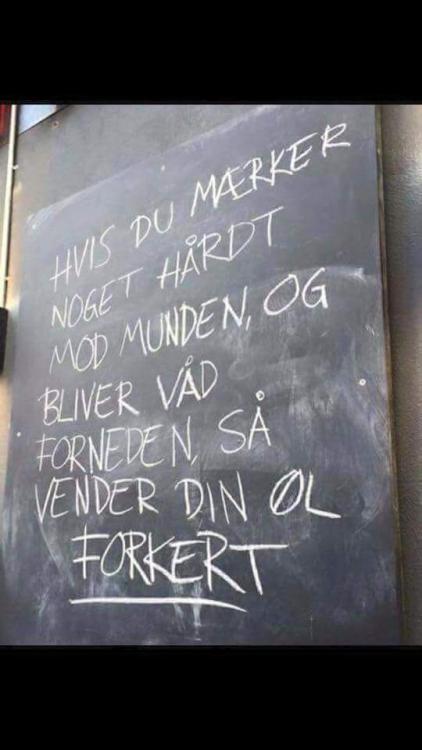 HVIS DU MÆRKER
NOGET HÅRDT
MOD MUNDEN, OG
BLIVER VÅD
FORNEDEN, SÅ
VENDER DIN ØL
FORKERT